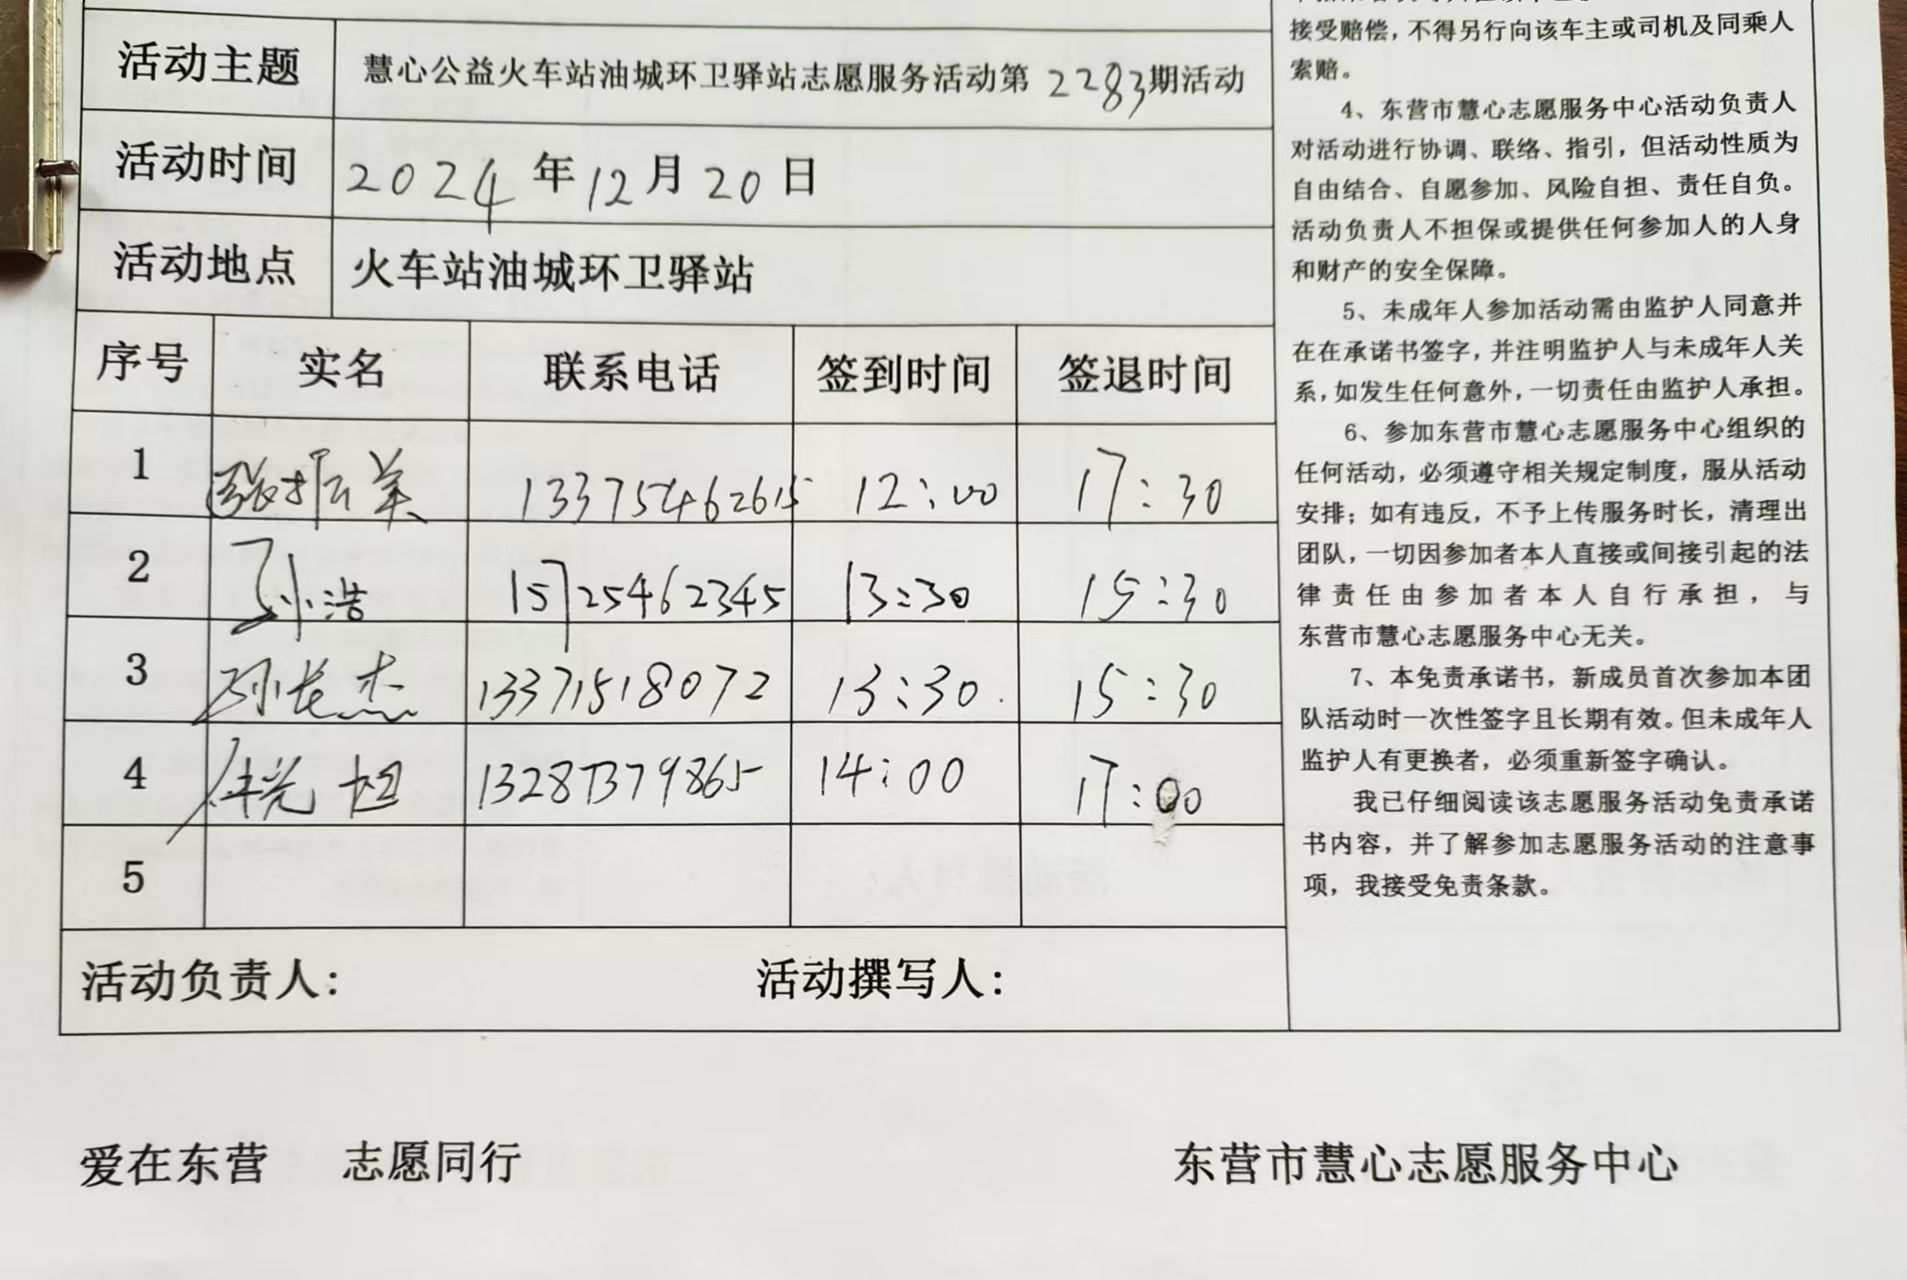 活动主题 慧心公益火车站油城环卫驿站志愿服务活动第2283期活动
活动时间 2024年12月20日
活动地点 火车站油城环卫驿站
序号 实名 联系电话 签到时间 签退时间
1 13375462615 12:00 17:30
2 孙浩 15725462345 13:30 15:30
3 孙长杰 13371518072 13:30 15:30
4 13287379865 14:00 17:00
5
活动负责人: 活动撰写人:
接受赔偿,不得另行向该车主或司机及同乘人
索赔。
4、东营市慧心志愿服务中心活动负责人
对活动进行协调、联络、指引,但活动性质为
自由结合、自愿参加、风险自担、责任自负。
活动负责人不担保或提供任何参加人的人身
和财产的安全保障。
5、未成年人参加活动需由监护人同意并
在在承诺书签字,并注明监护人与未成年人关
系,如发生任何意外,一切责任由监护人承担。
6、参加东营市慧心志愿服务中心组织的
任何活动,必须遵守相关规定制度,服从活动
安排;如有违反,不予上传服务时长,清理出
团队,一切因参加者本人直接或间接引起的法
律责任由参加者本人自行承担,与
东营市慧心志愿服务中心无关。
7、本免责承诺书,新成员首次参加本团
队活动时一次性签字且长期有效。但未成年人
监护人有更换者,必须重新签字确认。
我已仔细阅读该志愿服务活动免责承诺
书内容,并了解参加志愿服务活动的注意事
项,我接受免责条款。
爱在东营 志愿同行 东营市慧心志愿服务中心